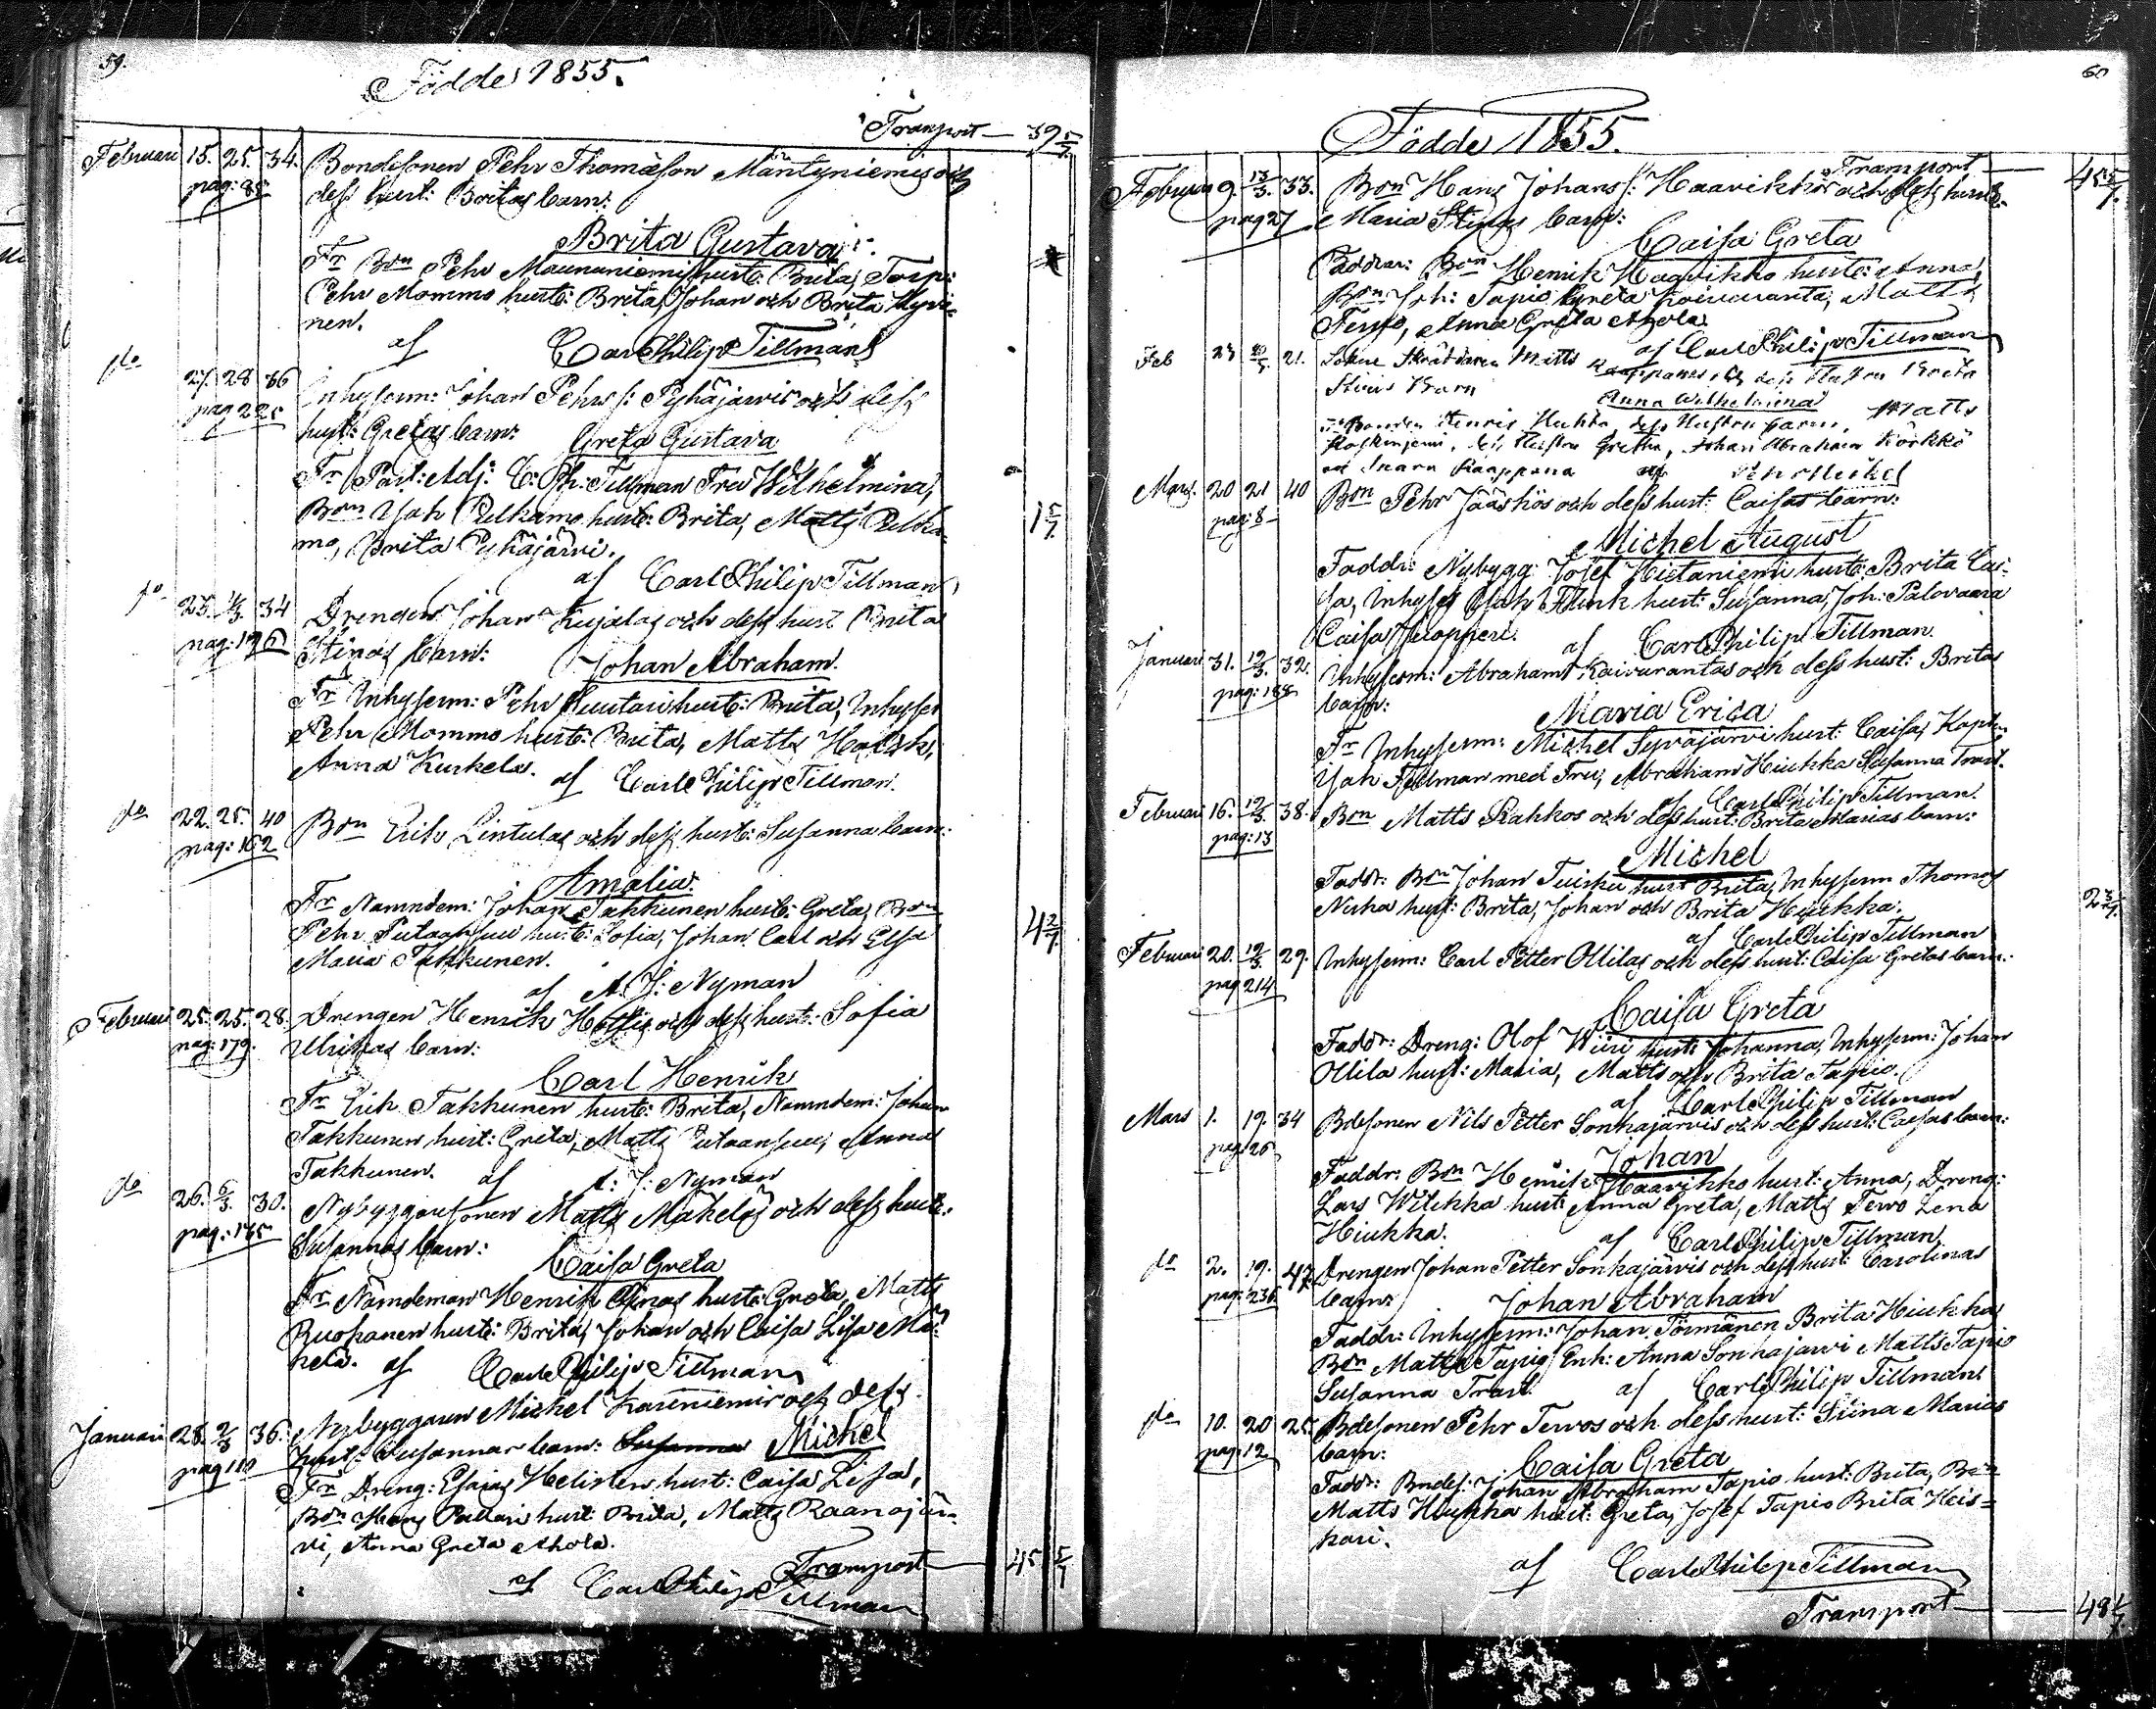 59.
Födde 1855.
Transport — 39 5/7.
Februari 15. 25. 34. Bondesonen Pehr Thomasson Mäntyniemis och
pag: 85 dess hust: Britas barn:
Brita Gustava
Fr Bon Pehr Maununiemi hust: Brita, Torp:
Pehr Mommo hust: Brita, Johan och Brita Hyvi-
nen.
af Carl Philip Tillman
do 27. 28 36 Inhysesm: Johan Pehrs s: Pyhäjärvis och dess
pag 225 hust: Gretas barn: Greta Gustava
Fr Past: Adj: C: Ph: Tillman Fru Wilhelmina,
Bon Isak Pulkamo hust: Brita, Matts Pulka- 1 5/7
mo, Brita Pyhäjärvi.
af Carl Philip Tillman
do 23. 1/3 34 Drengen Johan Kujalas och dess hust Brita
pag: 196 Stinas barn: Johan Abraham.
Fr Inhysesm: Pehr Suutari hust: Brita, Inhyses
Pehr Mommo hust: Brita, Matts
Anna Kuskela. af Carl Philip Tillman.
do 22. 25. 40 Bon Erik Lintulas och dess hust: Susannas barn:
pag: 162
Amalia.
Fr Nämndem: Johan Takkunen hust: Greta, Bon
Pehr Putaansuu hust: Sofia, Johan Carl och Elsa 4 2/7
Maria Takkunen.
af A. J: Nyman
Februari 25. 25. 28. Drengen Henrik Hottis och dess hust: Sofia
pag: 179. Ulrikas barn:
Carl Henrik
Fr Erik Takkunen hust: Brita, Nämndem: Johan
Takkunen hust: Greta, Matts Putaansuu, Anna
Takkunen. af A: J: Nyman
do 26. 6/3. 30. Nybyggaresonen Matts Mäkeläs och dess hust:
pag: 175 Susannas barn:
Caisa Greta
Fr Nämdeman Henrik hust: Greta, Matts
Ruokanen hust: Brita, Johan och Caisa Lisa Mä-
kelä. af Carl Philip Tillman
Januari 28. 2/3 36. Nybyggaren Michel Kariniemis och dess
pag 110 hust: Susannas barn: Susanna Michel
Fr Dreng: Esaias Helisten hust: Caisa Lisa,
Bon Hans Pallari hust: Brita, Matts Raanojär-
vi, Anna Greta Ahola.
Transport 45 5/7
af Carl Philip Tillman
60
Födde 1855.
Transport — 45 5/7.
Februari 9. 13/3. 33. Bon Hans Johans s: Haavikkos och dess hust:
pag 27 Maria Stinas barn:
Caisa Greta
Faddrar: Bon Henrik Haavikko hust: Anna,
Bon Joh: Tapio, Greta Koivuranta, Matts
Tervo, Anna Greta Ahola.
af Carl Philip Tillman
Feb 23 21. Sokne Skräddaren Matts Kaappanas, och dess Hustru Greta
Stinas Barn
Anna Wilhelmina
Fr Bonden Henric Huhta, dess Hustru Karin, Matts
Koskiniemi, dess Hustru Gretha, Johan Abraham Körkkö
och Maria Kaappana af Pehr Heikel
Mars. 20 21 40 Bon Pehr Jääskös och dess hust: Caisas barn:
pag: 8
Michel August
Faddr: Nybygg: Josef Hietaniemi hust: Brita Cai-
sa, Inhyses Isak Flink hust: Susanna, Joh: Palovaara
Caisa Juopperi. af Carl Philip Tillman.
Januari 31. 19/3. 32. Inhysesm: Abraham Koivurantas och dess hust: Britas
pag: 188 barn:
Maria Erica
Fr Inhysesm: Michel Syväjärvi hust: Caisa, Kapl:
Isak Fellman med Fru, Abraham Hiukka Susanna Trast.
af Carl Philip Tillman.
Februari 16. 19/3. 38. Bon Matts Rahkos och dess hust: Brita Marias barn:
pag: 13
Michel
Faddr: Bon Johan Tuisku hust Brita, Inhysesm Thomas
Niska hust: Brita, Johan och Brita Hiukka. 2 3/7.
af Carl Philip Tillman
Februari 20. 19/3. 29. Inhysesm: Carl Petter Ollilas och dess hust: Caisa Gretas barn:
pag 214
Caisa Greta
Faddr: Dreng: Olof Wiiri hust: Johanna, Inhysesm: Johan
Ollila hust: Maria, Matts och Brita Tapio.
af Carl Philip Tillman
Mars 1. 19. 34 Bdesonen Nils Petter Sonkajärvis och dess hust: Caisas barn:
pag: 26
Johan
Faddr: Bon Henrik Haavikko hust: Anna, Dreng:
Lars Wilckka hust: Anna Greta, Matts Tervo Lena
Hiukka. af Carl Philip Tillman
do 2. 19. 47. Drengen Johan Petter Sonkajärvis och dess hust: Carolinas
pag: 236 barn:
Johan Abraham
Faddr: Inhysesm: Johan Törmänen Brita Hiukka,
Bon Matts Tapio, Enk: Anna Sonkajärvi Matts Tapio
Susanna Trast. af Carl Philip Tillman
do 10. 20 25. Bdesonen Pehr Tervos och dess hust: Stina Marias
pag: 12 barn:
Caisa Greta
Faddr: Bndes: Johan Abraham Tapio hust: Brita, Bon
Matts Hiukka hust: Greta, Josef Tapio Brita Heis-
kari.
af Carl Philip Tillman
Transport — 48 1/7